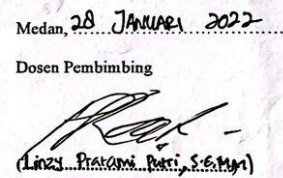 Medan, 28 JANUARI 2022
Dosen Pembimbing
(Linzy Pratami Putri, S.E, M.M)